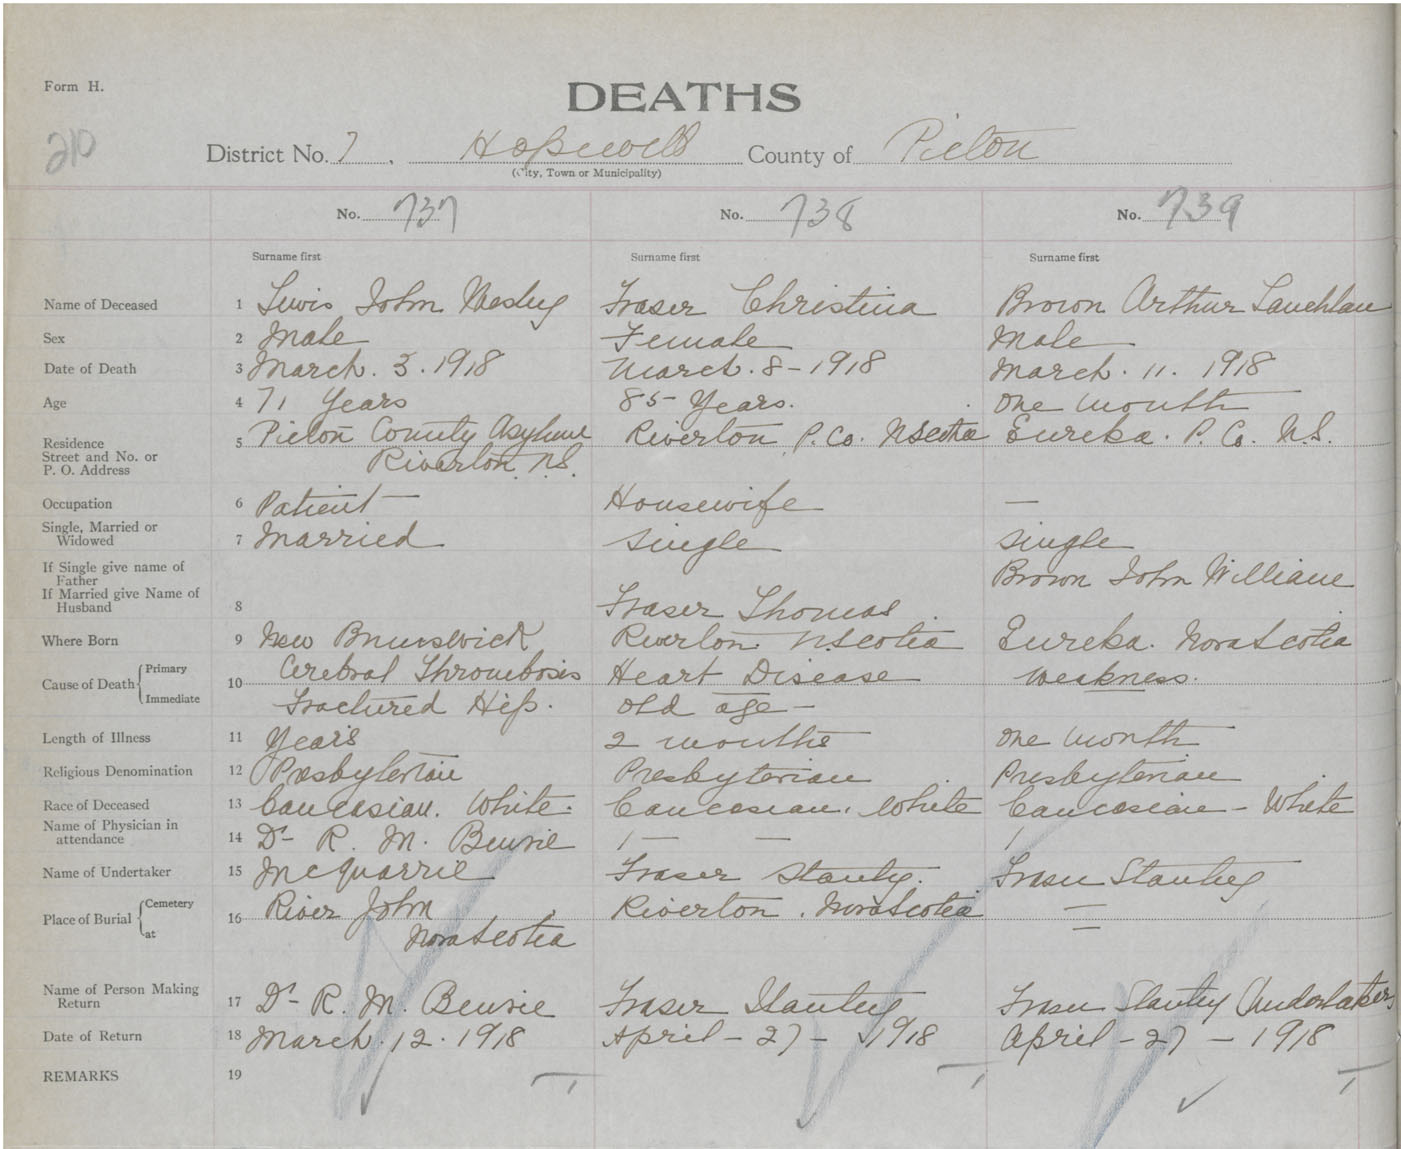 Form H.
DEATHS
210
District No. 7. Hopewell County of Pictou
(City, Town or Municipality)
No. 737 No. 738 No. 739
Surname first Surname first Surname first
Name of Deceased 1 Lewis John Wesley Fraser Christina Brown Arthur Lauchlan
Sex 2 Male Female Male
Date of Death 3 March. 3. 1918 March. 8 - 1918 March. 11. 1918
Age 4 71 Years 85 Years. One month
Residence 5 Pictou County Asylum Riverton P. Co. NScotia Eureka. P. Co. N.S.
Street and No. or Riverton N.S.
P. O. Address
Occupation 6 Patient Housewife —
Single, Married or
Widowed 7 Married Single Single
If Single give name of
Father Brown John William
If Married give Name of
Husband 8 Fraser Thomas
Where Born 9 New Brunswick Riverton NScotia Eureka. Nova Scotia
Cause of Death Primary 10 Cerebral Thrombosis Heart Disease Weakness.
Immediate Fractured Hip. Old age —
Length of Illness 11 Years 2 months One month
Religious Denomination 12 Presbyterian Presbyterian Presbyterian
Race of Deceased 13 Caucasian. White. Caucasian. White Caucasian - White
Name of Physician in
attendance 14 Dr R. M. — —
Name of Undertaker 15 McQuarrie Fraser Stanley. Fraser Stanley
Place of Burial Cemetery 16 River John Riverton. Nova Scotia —
at Nova Scotia —
Name of Person Making
Return 17 Dr R. M. Fraser Stanley Fraser Stanley Undertaker
Date of Return 18 March. 12. 1918 April - 27 - 1918 April - 27 - 1918
REMARKS 19